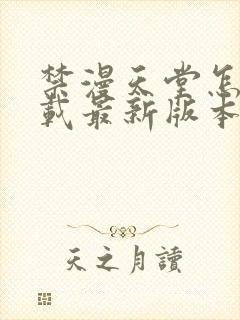 禁漫天堂怎
载最新版本
天之月讀